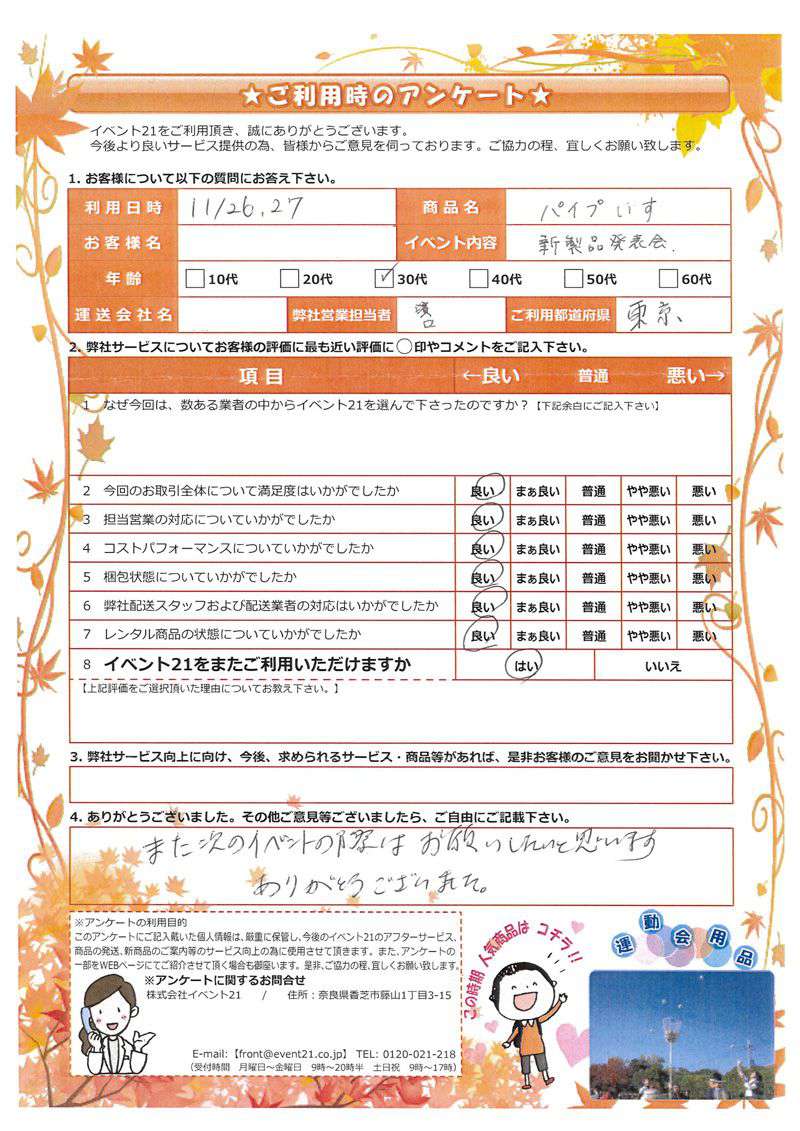 ★ご利用時のアンケート★
イベント21をご利用頂き、誠にありがとうございます。
今後より良いサービス提供の為、皆様からご意見を伺っております。ご協力の程、宜しくお願い致します。
1. お客様について以下の質問にお答え下さい。
利用日時 11/26,27 商品名 パイプいす
お客様名 イベント内容 新製品発表会.
年齢 10代 20代 30代 40代 50代 60代
運送会社名 弊社営業担当者 濱口 ご利用都道府県 東京、
2. 弊社サービスについてお客様の評価に最も近い評価に◯印やコメントをご記入下さい。
項目 ←良い 普通 悪い→
1 なぜ今回は、数ある業者の中からイベント21を選んで下さったのですか？【下記余白にご記入下さい】
2 今回のお取引全体について満足度はいかがでしたか 良い まぁ良い 普通 やや悪い 悪い
3 担当営業の対応についていかがでしたか 良い まぁ良い 普通 やや悪い 悪い
4 コストパフォーマンスについていかがでしたか 良い まぁ良い 普通 やや悪い 悪い
5 梱包状態についていかがでしたか 良い まぁ良い 普通 やや悪い 悪い
6 弊社配送スタッフおよび配送業者の対応はいかがでしたか 良い まぁ良い 普通 やや悪い 悪い
7 レンタル商品の状態についていかがでしたか 良い まぁ良い 普通 やや悪い 悪い
8 イベント21をまたご利用いただけますか はい いいえ
【上記評価をご選択頂いた理由についてお教え下さい。】
3. 弊社サービス向上に向け、今後、求められるサービス・商品等があれば、是非お客様のご意見をお聞かせ下さい。
4. ありがとうございました。その他ご意見等ございましたら、ご自由にご記載下さい。
また次のイベントの際はお願いしたいと思います
ありがとうございました。
※アンケートの利用目的
このアンケートにご記入戴いた個人情報は、厳重に保管し、今後のイベント21のアフターサービス、
商品の発送、新商品のご案内等のサービス向上の為に使用させて頂きます。また、アンケートの
一部をWEBページにてご紹介させて頂く場合も御座います。是非、ご協力の程、宜しくお願い致します。
※アンケートに関するお問合せ
株式会社イベント21 / 住所：奈良県香芝市藤山1丁目3-15
E-mail:【front@event21.co.jp】 TEL: 0120-021-218
（受付時間 月曜日～金曜日 9時～20時半 土日祝 9時～17時）
この時期 人気商品は コチラ!!
運動会用品